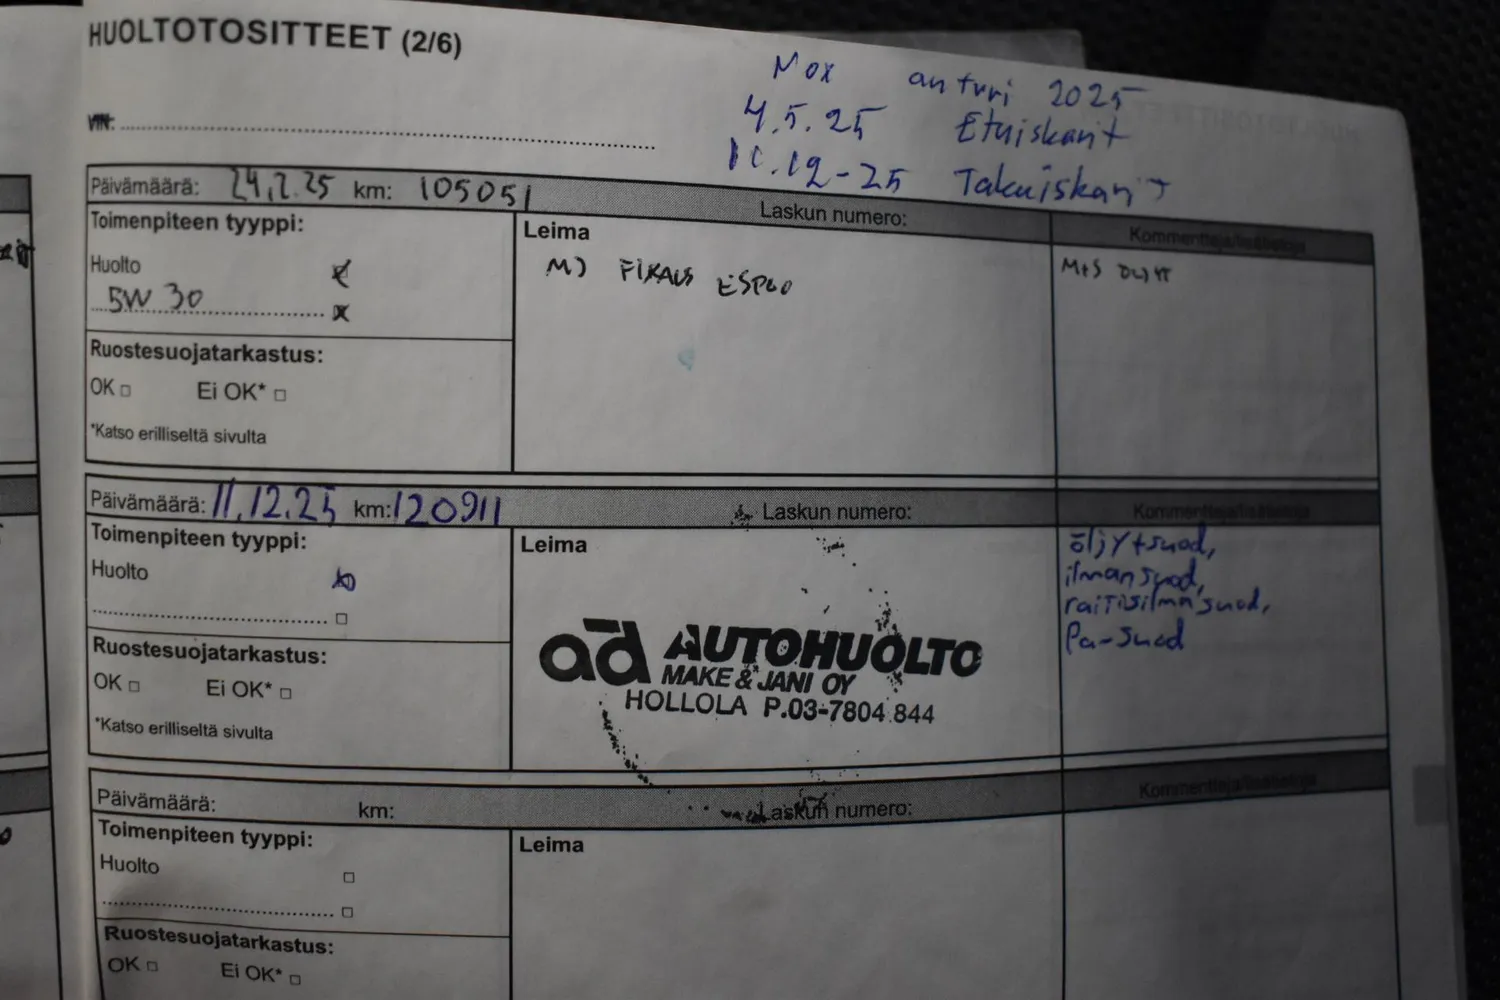 HUOLTOTOSITTEET (2/6)
Nox anturi 2025
4.5.25 Etuiskarit
11.12-25 Takaiskarit
VIN:
Päivämäärä: 24.2.25 km: 105051 Laskun numero:
Kommentteja/lisätietoja
Toimenpiteen tyyppi:
Leima
Huolto
MJ FIXAUS ESPOO
5W 30
Ruostesuojatarkastus:
OK Ei OK*
*Katso erilliseltä sivulta
Päivämäärä: 11.12.25 km: 120911 Laskun numero:
Kommentteja/lisätietoja
Toimenpiteen tyyppi:
Leima
öljy+suod,
Huolto
ilmansuod,
raitisilmasuod,
Pa-suod
ad AUTOHUOLTO
MAKE & JANI OY
HOLLOLA P.03-7804 844
Ruostesuojatarkastus:
OK Ei OK*
*Katso erilliseltä sivulta
Päivämäärä: km: Laskun numero:
Kommentteja/lisätietoja
Toimenpiteen tyyppi:
Leima
Huolto
Ruostesuojatarkastus:
OK Ei OK*